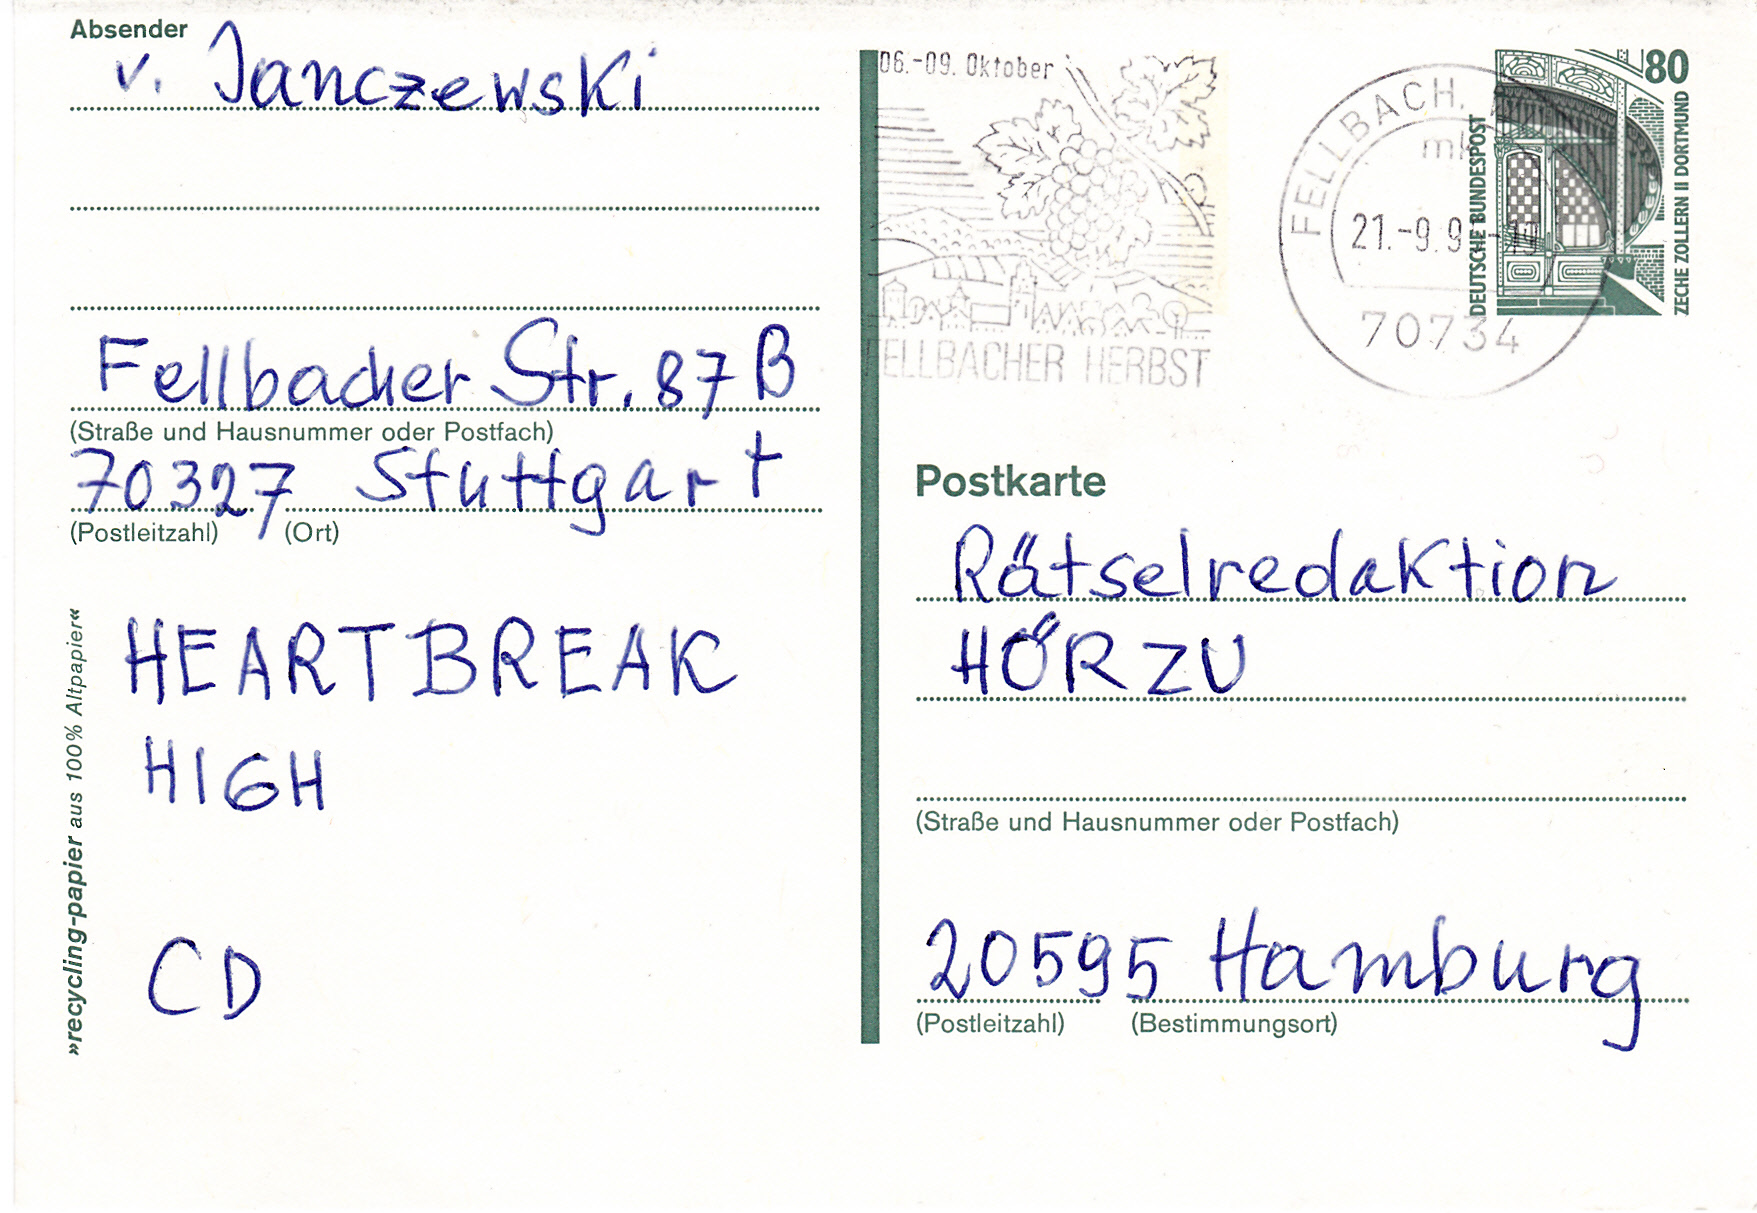 Absender
v. Janczewski
Fellbacher Str. 87 B
(Straße und Hausnummer oder Postfach)
70327 Stuttgart
(Postleitzahl) (Ort)
HEARTBREAK
HIGH
CD
»recycling-papier aus 100% Altpapier«
06.-09. Oktober
FELLBACHER HERBST
FELLBACH,
21.-9.9
70734
80
DEUTSCHE BUNDESPOST
ZECHE ZOLLERN II DORTMUND
Postkarte
Rätselredaktion
HÖRZU
(Straße und Hausnummer oder Postfach)
20595 Hamburg
(Postleitzahl) (Bestimmungsort)